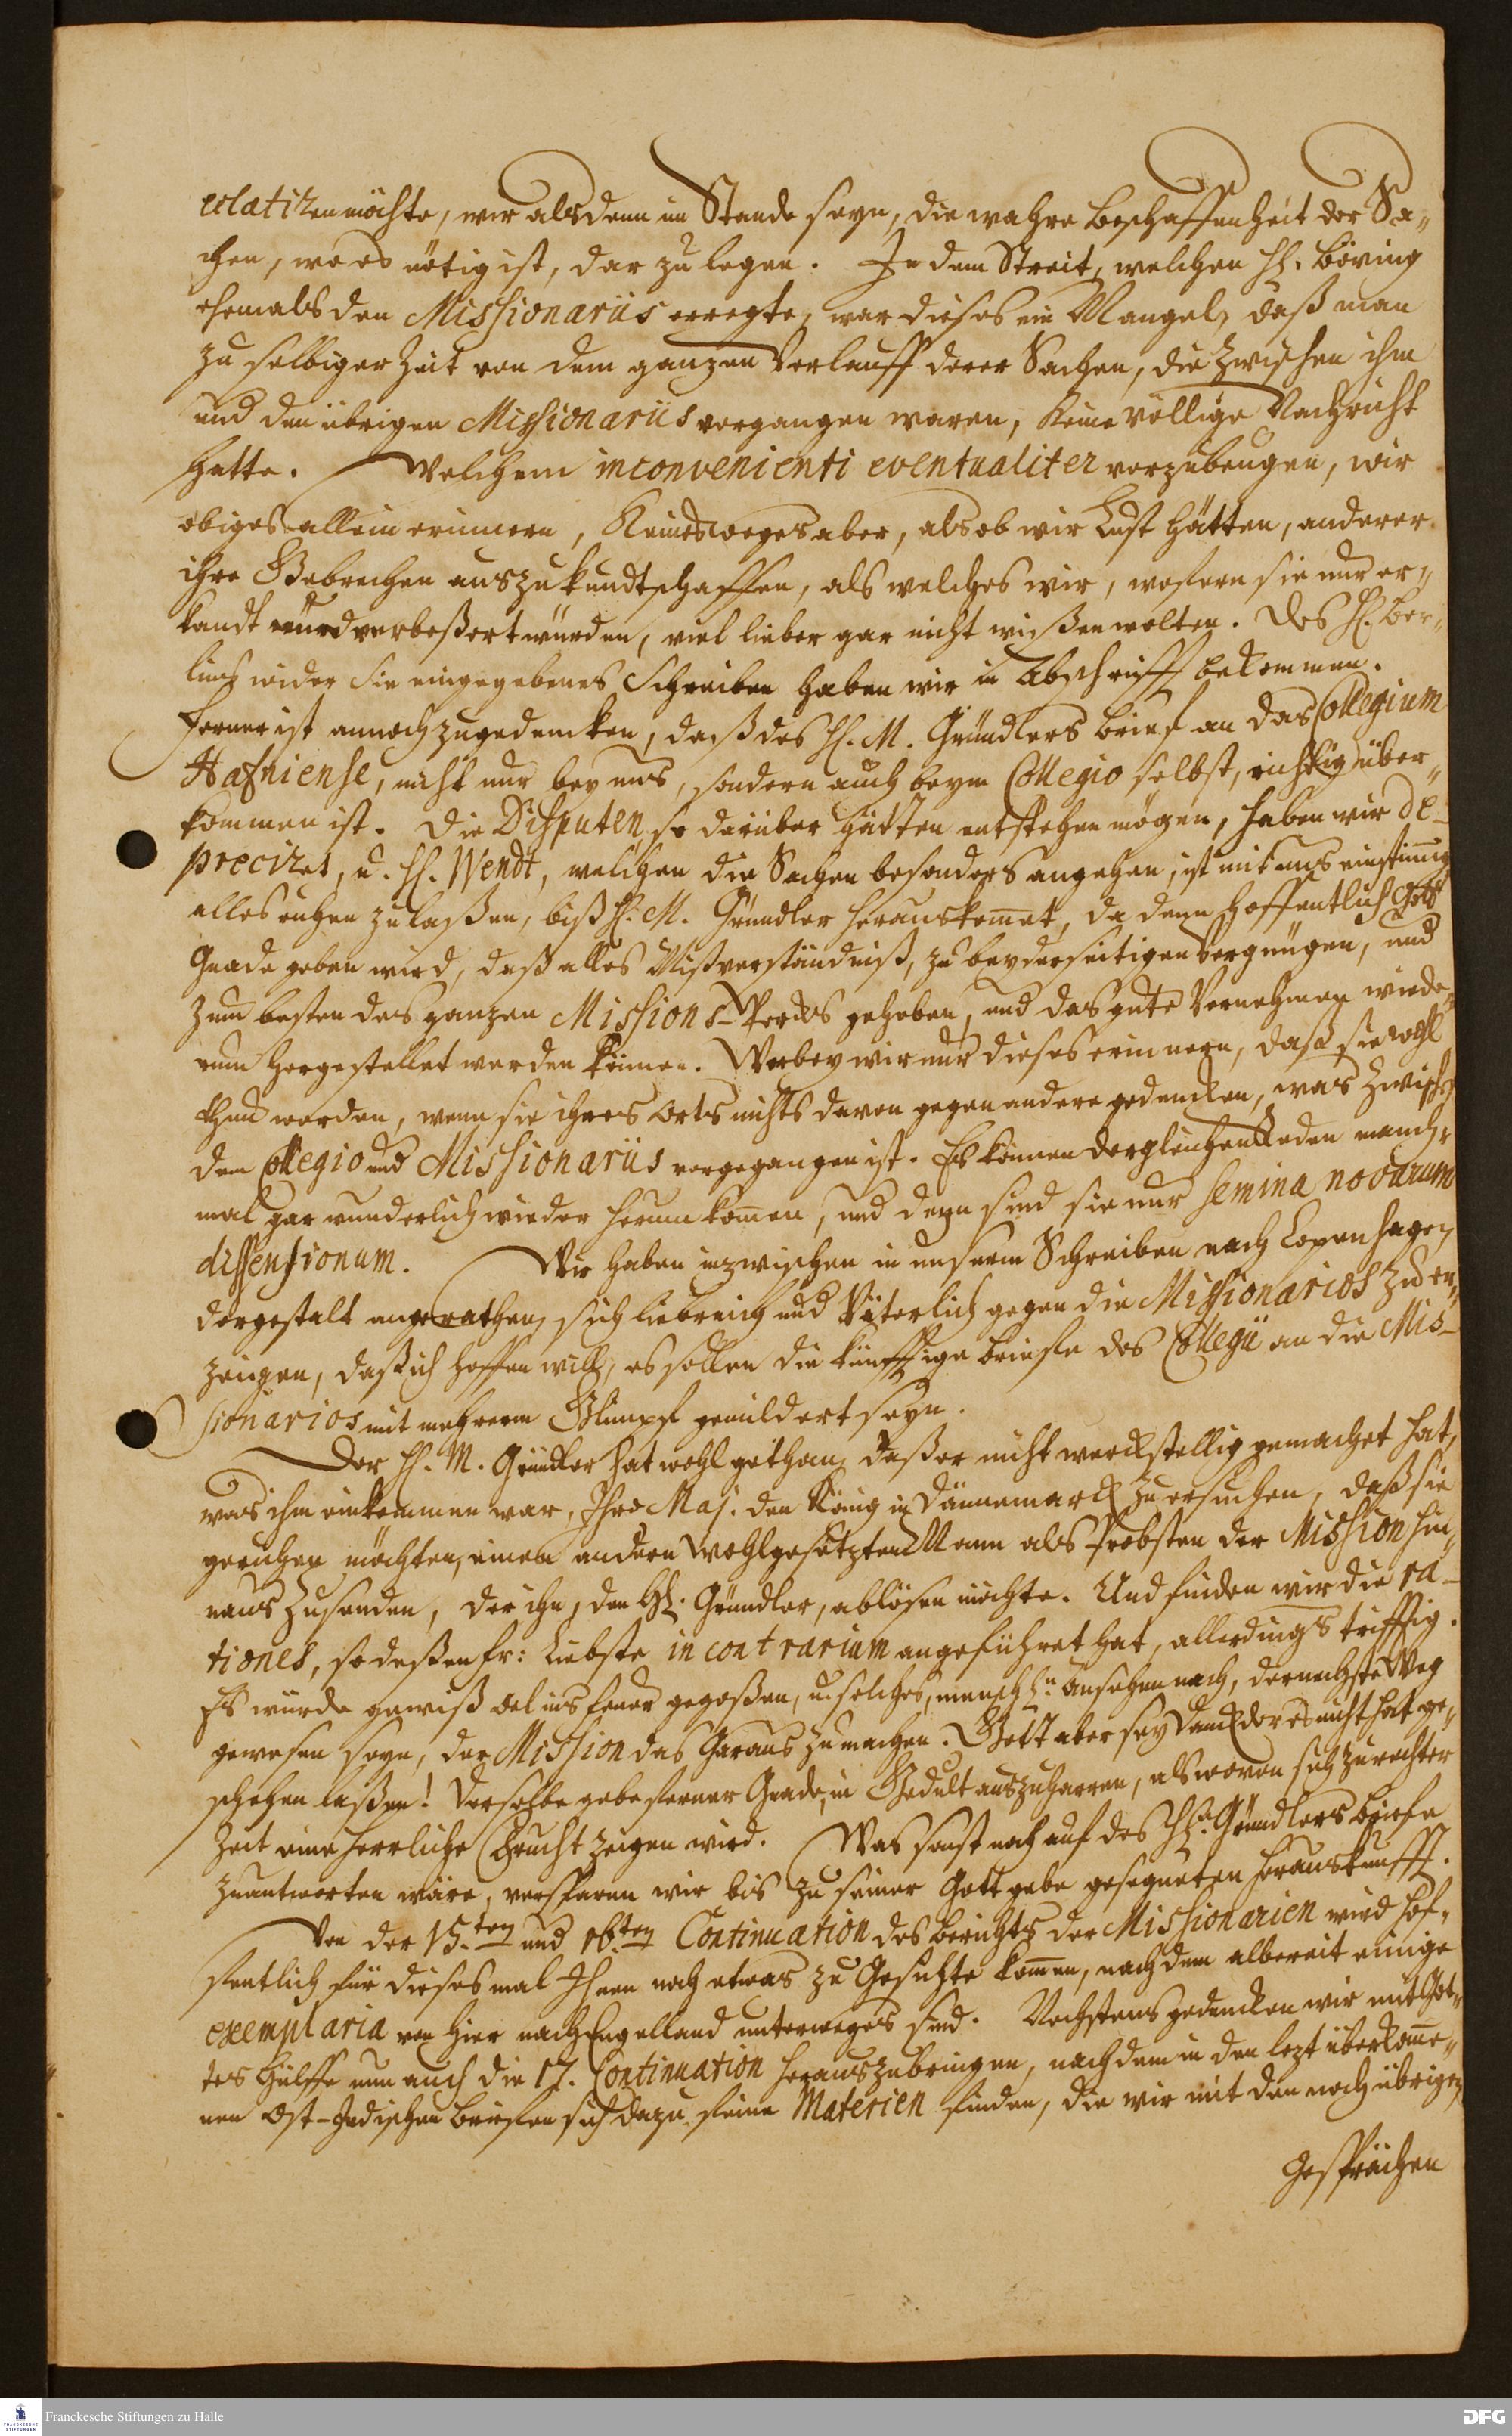 eclatiren möchte, wir alsdenn im Stande seyn, die wahre Beschaffenheit der Sa-
chen, wo es nötig ist, dar zu legen. In dem Streit, welchen H. Böving
ehemals den Missionariis erregte, war dieses ein Mangel, daß man
zu selbiger Zeit von dem ganzen Verlauff derer Sachen, die zwischen ihm
und den übrigen Missionariis vorgangen waren, keine völlige Nachricht
hatte. Welchem inconvenienti eventualiter vorzubeugen, wir
obiges allein erinnern, keinesweges aber, als ob wir Lust hätten, anderer
ihre Gebrechen auszukundtschaffen, als welches wir, wofern sie nur er-
kandt und verbeßert würden, viel lieber gar nicht wißen wolten. Des H. Ber-
lins wider Sie eingegebenes Schreiben haben wir in Abschrifft bekommen.
Ferner ist annoch zugedencken, daß des H. M. Gründlers Brief an das Collegium
Hafniense, nicht nur bey uns, sondern auch beym Collegio selbst, richtig über-
kommen ist. Die Disputen, so darüber hätten entstehen mögen, haben wir de-
preciret, u. H. Wendt, welchen die Sachen besonders angehen, ist mit uns einstimig
alles ruhen zu laßen, biß H. M. Gründler herauskomet, da denn hoffentlich Gott
Gnade geben wird, daß alles Mißverständniß, zu beyderseitigen Vergnügen, und
zum besten des ganzen Missions-Wercks gehoben, und das gute Vernehmen wiede-
rum hergestellet werden können. Worbey wir nur dieses erinnern, daß sie wohl
thun werden, wenn sie ihres Orts nichts davon gegen andere gedencken, was zwischen
dem Collegio und Missionariis vorgegangen ist. Es können dergleichen Reden manch-
mal gar wunderlich wieder herum komen, und denn sind sie nur semina novarum
dissensionum. Wir haben inzwischen in unserm Schreiben nach Copenhagen
dergestalt angerathen, sich liebreich und Väterlich gegen die Missionarios zu er-
zeigen, daß ich hoffen will, es sollen die künfftige Briefe des Collegii an die Mis-
sionarios mit mehrerm Glimpf gemildert seyn.
Der H. M. Gründler hat wohl gethan, daß er nicht werckstellig gemachet hat,
was ihm einkommen war, Ihro Maj. den König in Dännemarck zu ersuchen, daß sie
geruhen möchten, einen andern wohlgesetzten Mann als Probsten der Mission hin-
aus zusenden, der ihn, den H. Gründler, ablösen möchte. Und finden wir die ra-
tiones, so deßen Fr: Liebste in contrarium angeführet hat, allerdings trifftig.
Es würde gewiß Oel ins Feuer gegoßen, u. solches, menschl. Ansehen nach, der nechste Weg
gewesen seyn, der Mission das Garaus zu machen. Gott aber sey Danck der es nicht hat ge-
schehen laßen! Derselbe gebe ferner Gnade, in Gedult auszuharren, als wovon sich zu rechter
Zeit eine herrliche Frucht zeigen wird. Was sonst noch auf des H. Gründlers Briefe
zuantworten wäre, versparen wir bis zu seiner Gott gebe gesegneten Herauskunfft.
Von der 15.ten und 16.ten Continuation des Berichts der Missionarien wird hof-
fentlich für dieses mal Ihnen noch etwas zu Gesichte komen, nach dem albereit einige
exemplaria von hier nach Engelland unterweges sind. Nechstens gedencken wir mit Got-
tes Hülffe nun auch die 17. Continuation herauszubringen, nachdem in den lezt überkome-
nen Ost-Indischen Briefen sich dazu feine Materien finden, die wir mit den noch übrigen
Gesprächen
Franckesche Stiftungen zu Halle
DFG